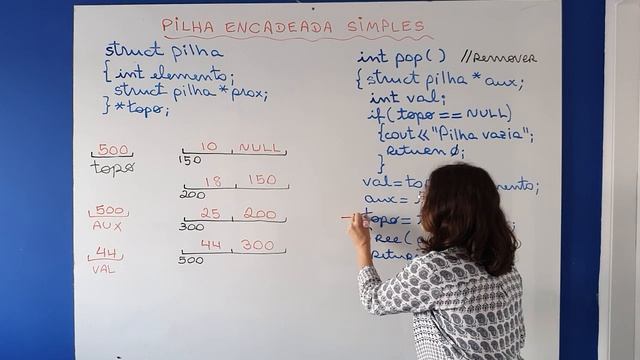 PILHA ENCADEADA SIMPLES
struct pilha
{ int elemento;
struct pilha * prox;
} * topo;
500
topo
500
AUX
44
VAL
10 NULL
150
18 150
200
25 200
300
44 300
500
int pop() //REMOVER
{ struct pilha * aux;
int val;
if (topo == NULL)
{ cout << "Pilha vazia";
return 0;
}
val =
aux =
topo =